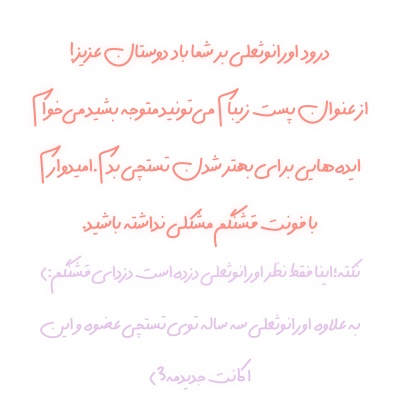 درود اورانوثعلی بر شما باد دوستان عزیز!
از عنوان پست زیبام می‌تونید متوجه بشید می‌خوام
ایده‌هایی برای بهتر شدن تستچی بدم. امیدوارم
با فونت قشنگم مشکلی نداشته باشید.
نکته؛اینا فقط نظر اورانوثعلی دزده است دزدای قشنگم:)
به علاوه اورانوثعلی سه ساله توی تستچی عضوه و این
اکانت جدیدمه3>